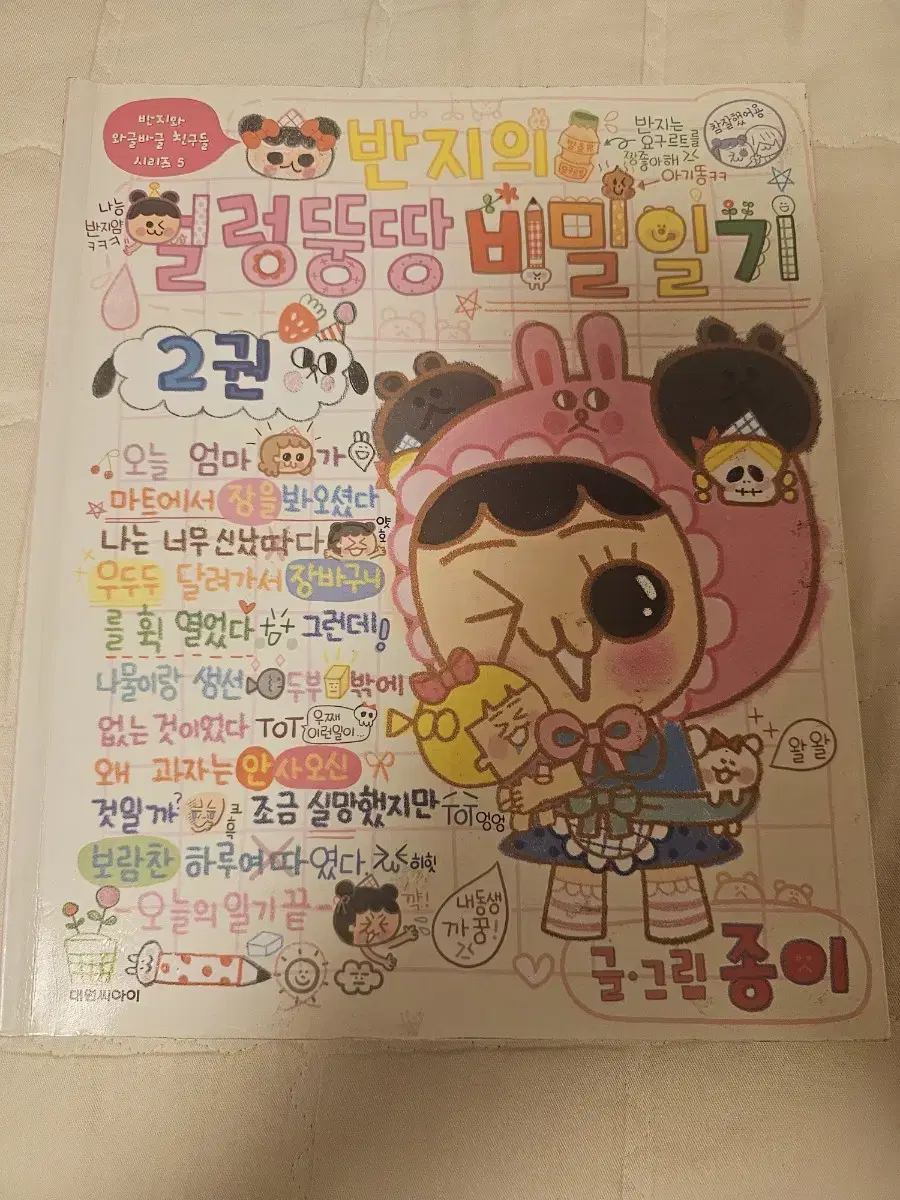 반지와
와글바글 친구들
시리즈 5
반지의
반지는
요구르트를
짱좋아해
참잘했어용
아기똥ㅋㅋ
나능
반지얌
ㅋㅋㅋ
얼렁뚱땅 비밀일기
2권
오늘 엄마가
마트에서 장을 봐오셨다
나는 너무 신났따다
얏호
우두두 달려가서 장바구니
를 휙 열었다 그런데!
나물이랑 생선 두부 밖에
없는 것이었다 ToT
우째
이런일이...
왜 과자는 안 사오신
것일까? 조금 실망했지만 ToT 엉엉
크흑
보람찬 하루여따였다. 히힛
오늘의 일기 끝
깍!
내동생
까꿍!
왈왈
글·그림 종이
대원씨아이